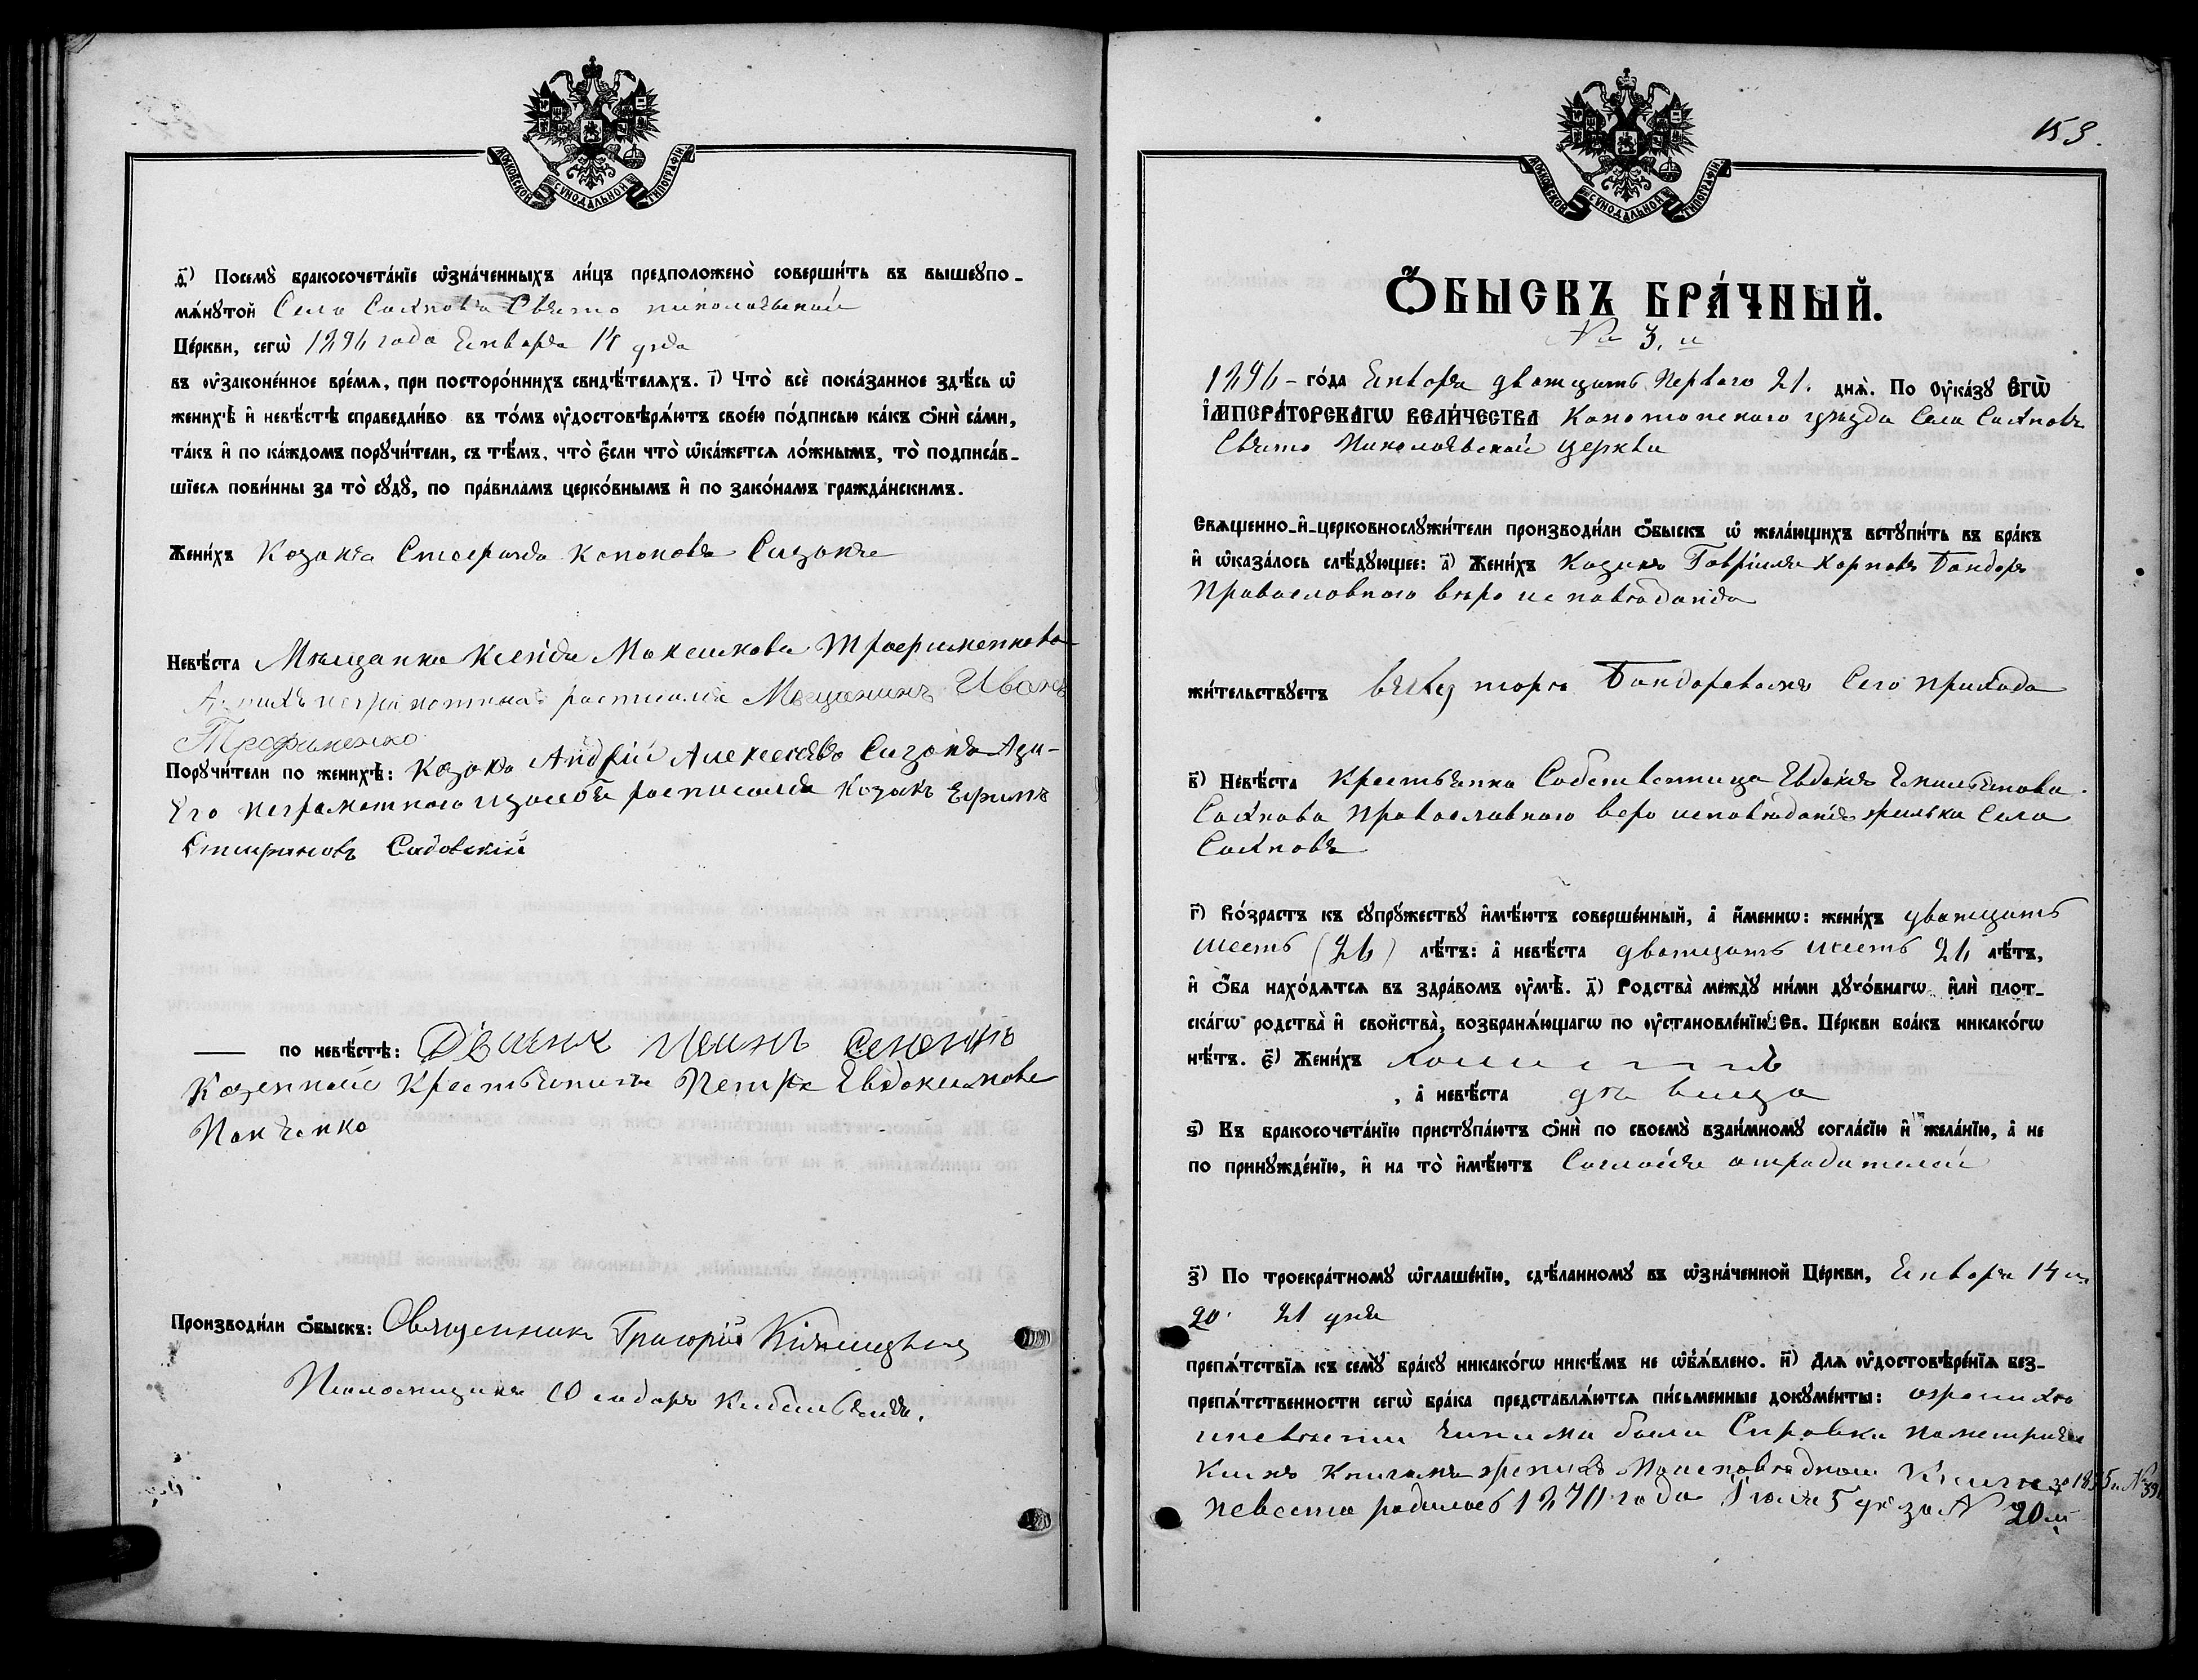 МОСКОВСКОЙ СѴНОДАЛЬНОЙ ТИПОГРАФІИ
ѳ҃) Посемꙋ̀ бракосочета́нїе ѡ҆зна́ченныхъ ли́цъ предположено̀ соверши́ть въ вышеꙋпо-
мѧ́нꙋтой Села Сахновъ Свято николаевской
Це́ркви, сегѡ̀ 1896 года Января 14 дня
въ ᲂу҆законе́нное вре́мѧ, при посторо́ннихъ свидѣ́телѧхъ. і҃) Что̀ всѐ пока́занное здѣ́сь ѡ҆
женихѣ̀ и҆ невѣ́стѣ справедли́во въ то́мъ ᲂу҆достовѣрѧ́ютъ свое́ю по́дписью ка́къ ѻ҆нѝ са́ми,
та́къ и҆ по ка́ждомъ порꙋчи́тели, съ тѣ́мъ, что̀ є҆́сли что̀ ѡ҆ка́жетсѧ ло́жнымъ, то̀ подписа́в-
шїесѧ пови́нны за то̀ сꙋдꙋ̀, по пра́виламъ церко́внымъ и҆ по зако́намъ гражда́нскимъ.
Жени́хъ Козакъ Стефанъ Кононовъ Сизонъ
Невѣ́ста Мѣщанка Ксенія Максимова Трофименкова
неграмотныхъ расписался Мѣщанинъ Иванъ
Трофименко
Порꙋчи́тели по женихѣ̀: Козакъ Андрій Алексѣевъ Сизонъ Аза-
его неграмотного изсебя росписался Козакъ Ефимъ
Стефановъ Садовскій
— по невѣ́стѣ:
Казенной Крестьянинъ Петръ Евдокимовъ
Панченко
Производи́ли ѻ҆́быскъ: Священникъ Григорій
Псаломщикъ
153.
МОСКОВСКОЙ СѴНОДАЛЬНОЙ ТИПОГРАФІИ
Ѻ҆́БЫСКЪ БРА́ЧНЫЙ.
№ 3. й
1896 - го́да Января двадцать Первого 21. днѧ̀. По Оу҆ка́зꙋ ЕГѠ̀
І҆МПЕРА́ТОРСКАГѠ ВЕЛИ́ЧЕСТВА Конотопского уѣзда Села Сахновъ
Свято Николаевской церкви
Свѧщенно-и҆-церковнослꙋжи́тели производи́ли ѻ҆́быскъ ѡ҆ жела́ющихъ встꙋпи́ть въ бра́къ
и҆ ѡ҆каза́лось слѣ́дꙋющее: а҃) Жени́хъ Козакъ Гавріилъ Карповъ Бондаръ
Православного вѣро исповѣданія
жи́тельствꙋетъ Бондоревомъ Сего прихода
в҃) Невѣ́ста Крестьянка Собственница Евдокія Емильянова
Сахнова Православного веро исповѣданія Села
Сахновъ
г҃) Во́зрастъ къ сꙋпрꙋ́жествꙋ и҆мѣ́ютъ соверше́нный, а҆ и҆́менно: жени́хъ двадцать
шесть (26) лѣ́тъ: а҆ невѣ́ста двадцать шесть 26 лѣ́тъ,
и҆ ѻ҆́ба нахо́дѧтсѧ въ здра́вомъ ᲂу҆мѣ̀. д҃) Родства̀ междꙋ̀ ни́ми дꙋхо́внагѡ и҆лѝ плот-
ска́гѡ родства̀ и҆ свойства̀, возбранѧ́ющагѡ по ᲂу҆становле́нїю Св. Це́ркви бра́къ никако́гѡ
нѣ́тъ. є҃) Жени́хъ Холостъ
, а҆ невѣ́ста дѣвица
ѕ҃) Къ бракосочета́нїю пристꙋпа́ютъ ѻ҆нѝ по своемꙋ̀ взаи́мномꙋ согла́сїю и҆ жела́нїю, а҆ не
по принꙋжде́нїю, и҆ на то̀ и҆мѣ́ютъ Согласія отродителей
з҃) По троекра́тномꙋ ѡ҆глаше́нїю, сдѣ́ланномꙋ въ ѡ҆зна́ченной Це́ркви, Января 14 и
20. 21 дня
препѧ́тствїѧ къ семꙋ̀ бра́кꙋ никако́гѡ никѣ́мъ не ѡ҆б̾ѧ́влено. и҃) Длѧ ᲂу҆достовѣре́нїѧ без-
препѧ́тственности сегѡ̀ бра́ка представлѧ́ютсѧ пи́сьменные докꙋме́нты: ожениху
иневѣсти были Справки пометриче
скимъ книгамъ женихъ Поисповѣдной Книги за 1895 г. №
невеста родилась 1870 года Іюля 5 дн за № 20 м